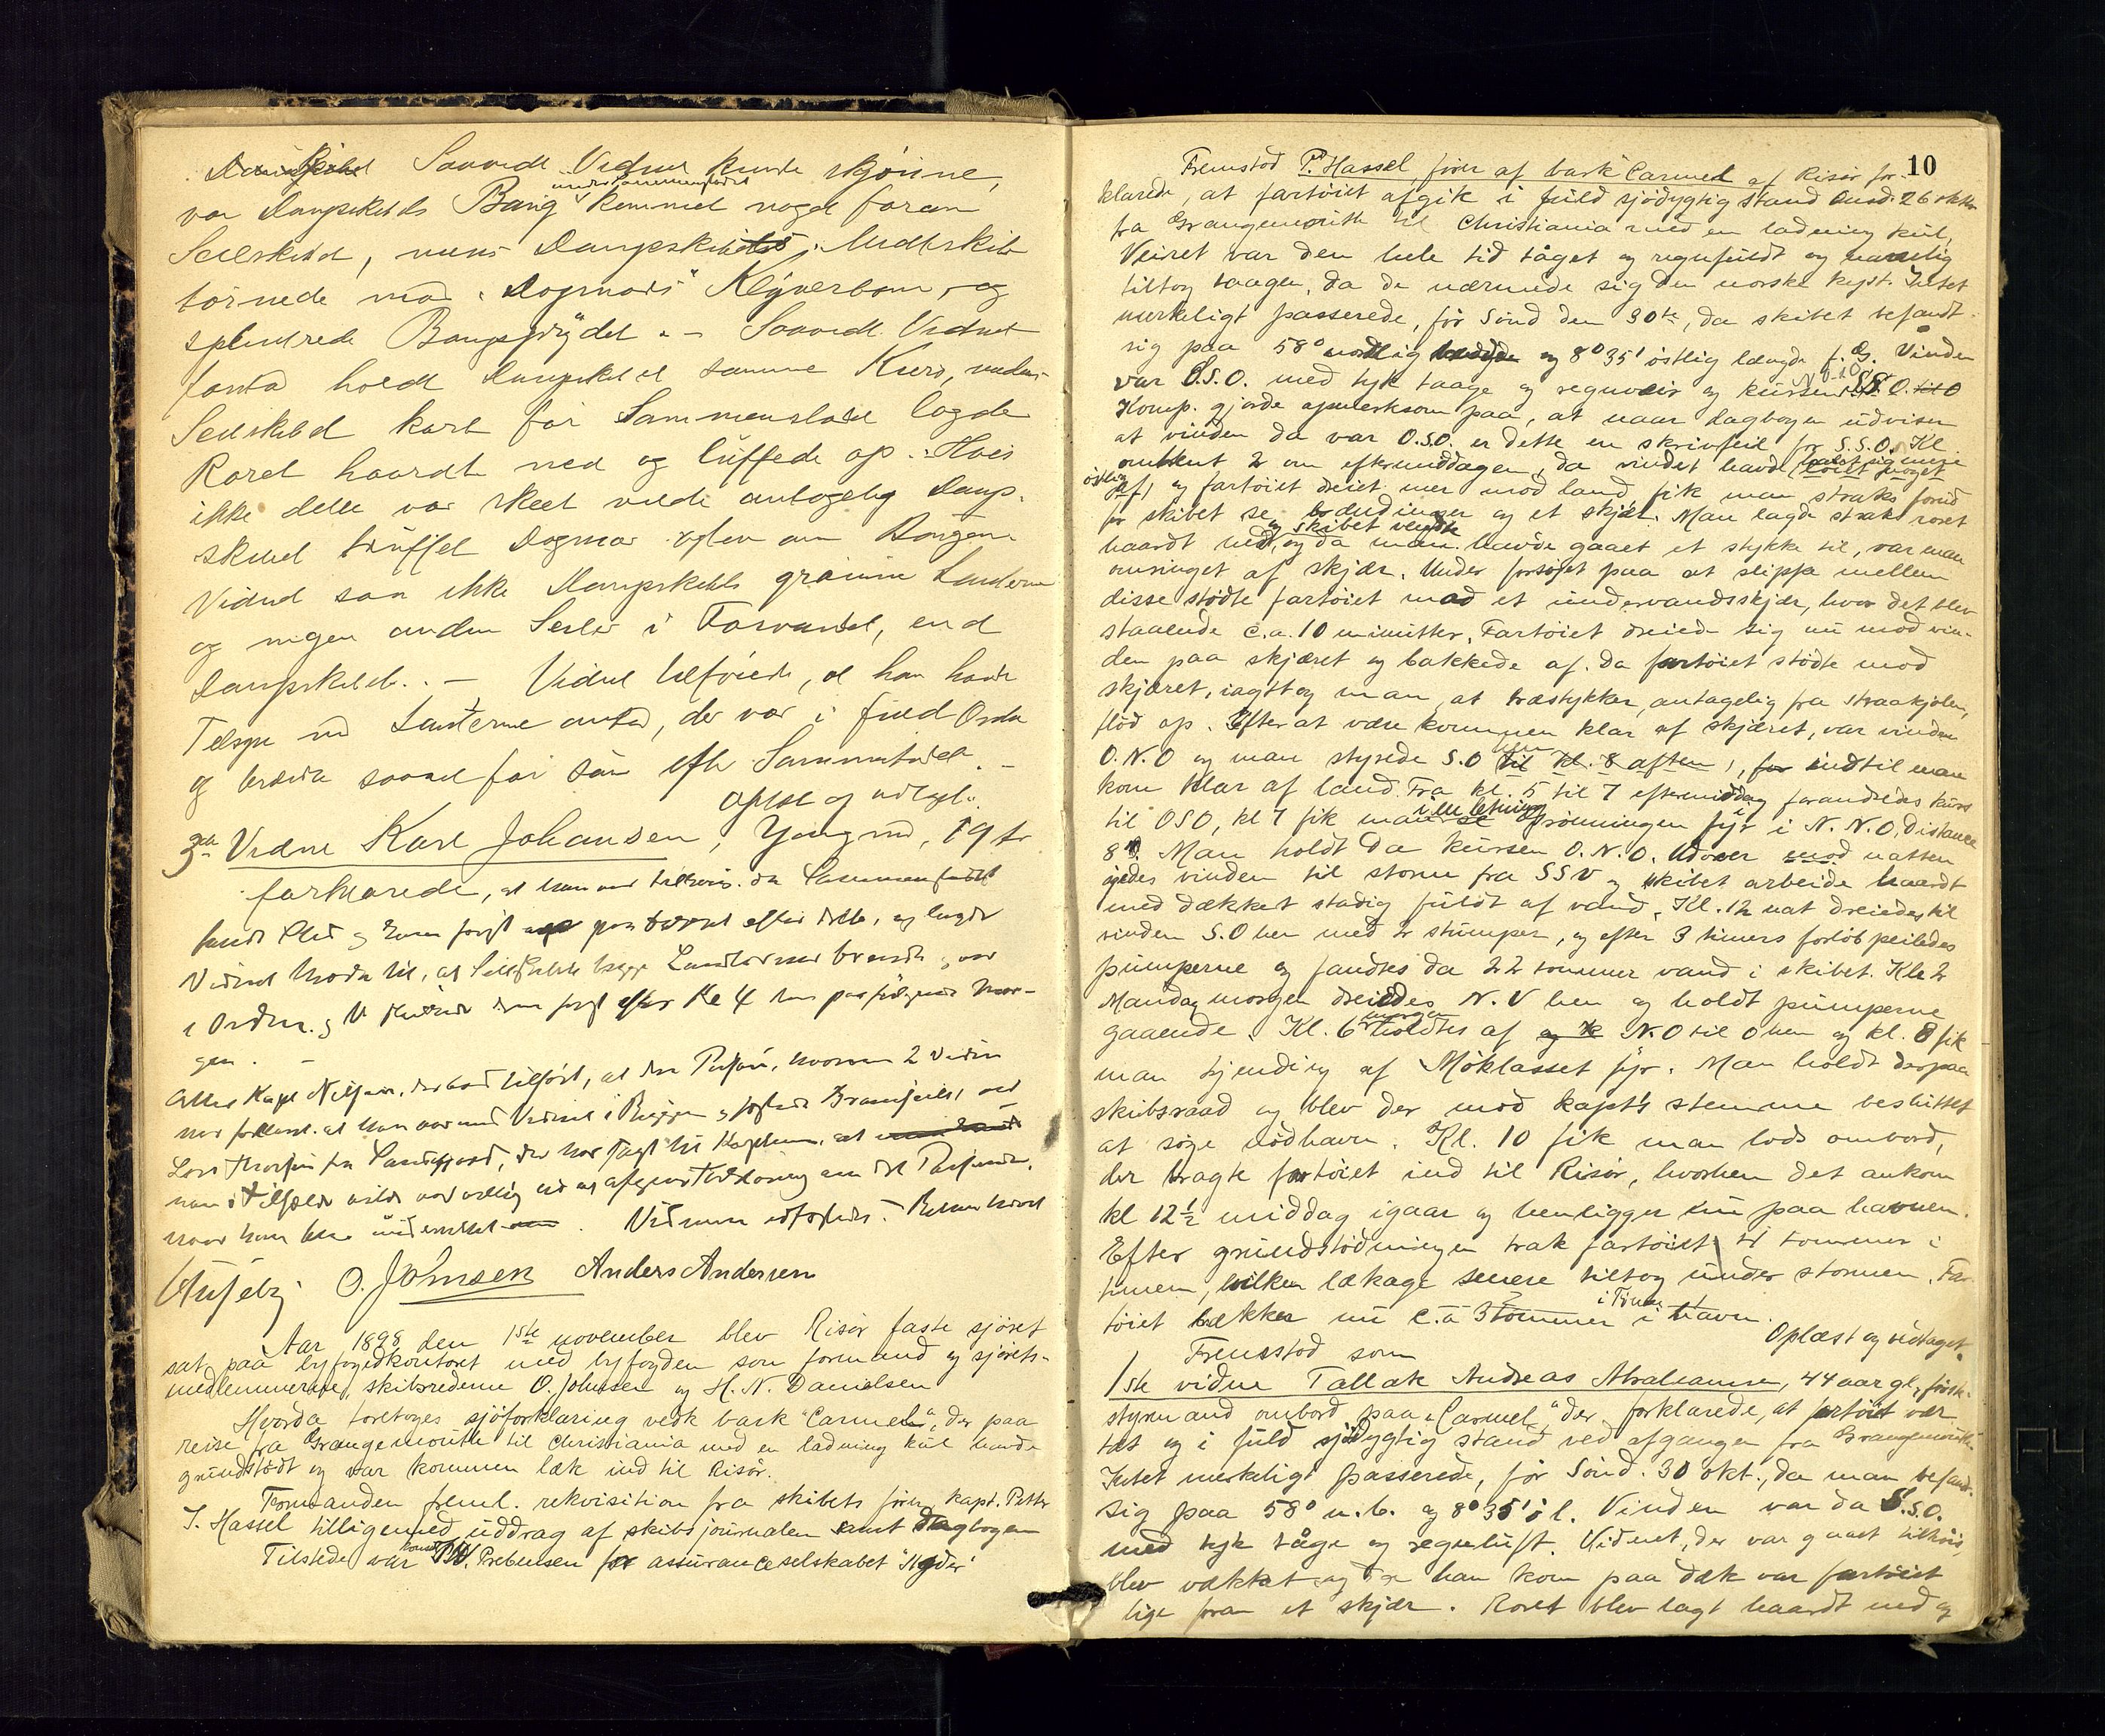 Saavidt Vidnet kunde skjönne,
var Dampskibets Boug under sammenstödet kommet noget foran
Seilskibet, mens Dampskibets Midtskib
tornede mod "Dagmars" Klyverbom, og
splintrede Bougsprydet. — Saavidt Vidnet
forstod holdt Dampskibet samme Kurs, medens
Seilskibet kort för Sammenstödet lagde
Roret haardt ned og luffede op. Hvis
ikke dette var skeet vilde antagelig Damp-
skibet truffet Dagmar agten om Bougen.
Vidnet saa ikke Dampskibets grönne Lanterne
og ingen anden Seiler i Farvandet, end
Dampskibet. — Vidnet tilföiede, at han havde
Tilsyn med Lanternerne ombord, der var i fuld Orden
og brændte saavel för som efter Sammenstödet. —
Oplæst og vedtaget.
3die Vidne Karl Johansen, Jungmd, 19 Ar
forklarede, at han var tilköis da Sammenstödet
fandt Sted og kom först op paa Dækket efter dette, og lagde
Vidnet Mærke til, at Seilskibets begge Lanterner brændte og var
i Orden. og de slukkede dem först efter Kl 4 den paafölgende Mor-
gen. —
Efter Kapt Nielsens, der bad tilfört, at den Person, hvorom 2 Vidne
har forklaret at han var med Vidnet i Riggen
Lars fra Sandefjord, der har sagt til Kaptein, at
han i Tilfælde vilde være villig til at afgive Forklaring om det Passerede,
naar han blev indkaldt. Vidnerne edfæstedes. Retten hævet
O. Johnsen Anders Andersen
Aar 1898 den 1ste november blev Risör faste sjöret
sat paa byfogedkontoret med byfogden som formand og sjörets-
medlemmerne, skibsrederne O. Johnsen og H. N. Danielsen
Hvorda foretoges sjöforklaring vedk bark "Carmel", der paa
reise fra Grangemouth til Christiania med en ladning kul havde
grundstödt og var kommen læk ind til Risör.
Formanden freml. rekvisition fra skibets förer, kapt. Petter
J. Hassel tilligemed uddrag af skibsjournalen samt dagbogen
Tilstede var konsul Prebensen for assuranceselskabet "Agder"
10
Fremstod P. Hassel, förer af bark "Carmel" af Risör for-
klarede, at fartöiet afgik i fuld sjödygtig stand onsd. 26 oktbr
fra Grangemouth til Christiania med en ladning kul,
Veiret var den hele tid tåget og regnfuldt og navnlig
tiltog taagen, da de nærmede sig den norske kyst. Intet
merkeligt passerede, för Sönd den 30te, da skibet befandt
sig paa 58° nordlig bredde og 8° 35' östlig længde f. G. Vinden
var O.S.O. med tyk taage og regnveir og kursen N.O. til O
Komp. gjorde opmerksom paa, at naar dagbogen udviser
at vinden da var O.S.O. er dette en skrivfeil for S.S.O. Kl
omtrent 2 om eftermiddagen, da vinden havde löiet noget
af, og fartöiet dreiet mer mod land, fik man straks forud
for skibet se brændinger og et skjær. Man lagde straks roret
haardt ned, og skibet vendte og da man havde gaaet et stykke til, var man
omringet af skjær. Under forsöget paa at slippe mellem
disse stödte fartöiet mod et undervandsskjær, hvor det blev
staaende c.a. 10 minutter. Fartöiet dreiede sig nu mod vin-
den paa skjæret og bakkede af. Da fartöiet stödte mod
skjæret, iagttog man, at træstykker, antagelig fra straakjölen,
flöd op. Efter at være kommen klar af skjæret, var vinden
O.N.O og man styrede S.O til Kl. 8 aften, for indtil man
kom klar af land. Fra kl. 5 til 7 eftermiddag forandredes kurs
til OSO, kl 7 fik man i en letning Grönningen fyr i N.N.O. distance
8'. Man holdt da kursen O.N.O. Udover mod natten
ögedes vinden til storm fra SSV og skibet arbeide haardt
med dækket stadig fuldt af vand. Kl. 12 nat dreiedes til
vinden S.O hen med 2 stumper, og efter 3 timers forlöb peiledes
pumperne og fandtes da 22 tommer vand i skibet. Kl 2
Mandag morgen dreiedes N.V hen og holdt pumperne
gaaende. Kl. 6 morgen holdtes af og N.O til O hen og kl. 8 fik
man kjending af Möklasset fyr. Man holdt derpaa
skibsraad og blev der mod kapt's stemme besluttet
at söge nödhavn. Kl. 10 fik man lods ombord,
der bragte fartöiet ind til Risör, hvorhen det ankom
kl 12½ middag igaar og henligger nu paa havnen.
Efter grundstödningen trak fartöiet tommer i
timen, hvilken lækage senere tiltog under stormen. Far-
töiet lækker nu c.a 3 tommer i Timen i havn.
Oplæst og vedtaget.
Fremstod som
1ste vidne Tallak Andreas Abrahamsen, 44 aar gl, först-
styrmand ombord paa "Carmel", der forklarede, at fartöiet var
tæt og i fuld sjödygtig stand ved afgangen fra Grangemouth
Intet merkeligt passerede, för Sönd. 30 okt., da man befand
sig paa 58° n.b. og 8° 35' ö l. Vinden var da S.S.O.
med tyk tåge og regnluft. Vidnet, der var gaaet tilköis,
blev vækket og da han kom paa dæk var fartöiet
lige foran et skjær. Roret blev lagt haardt ned og